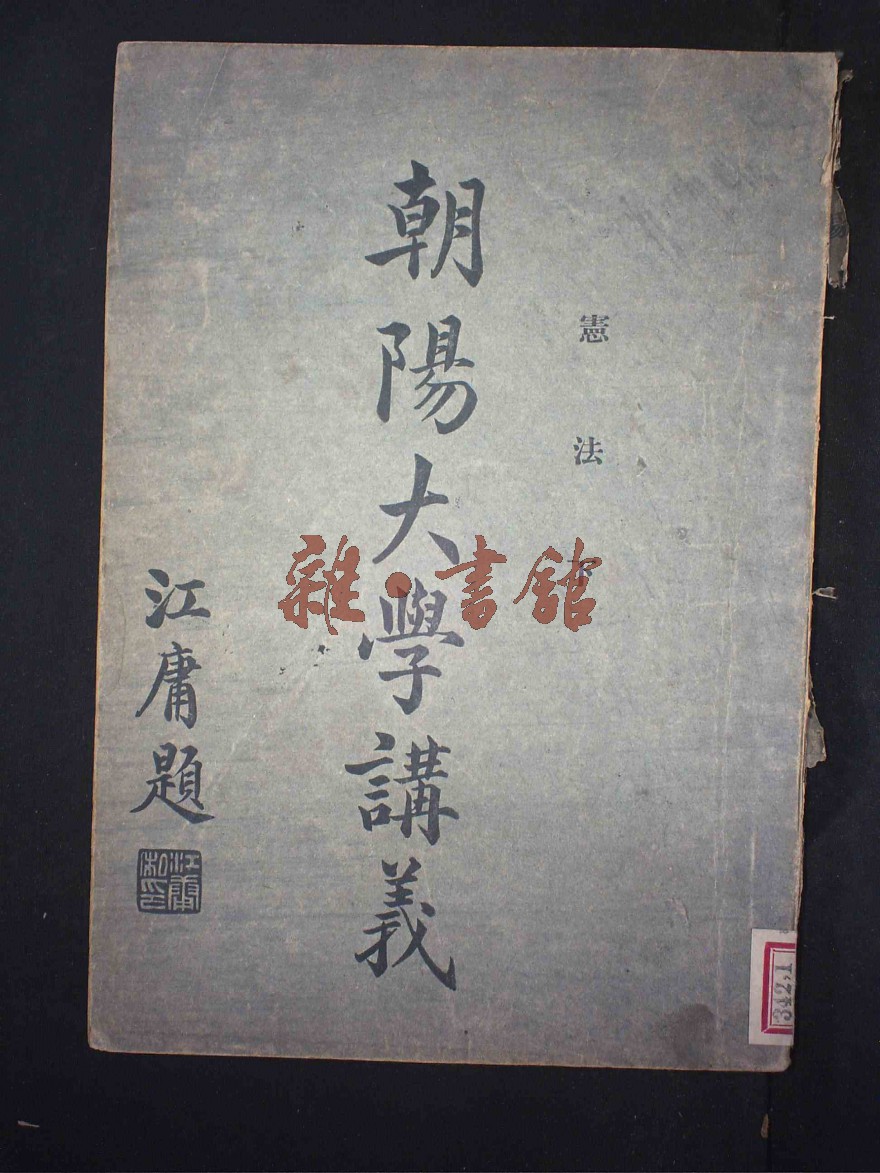 憲法下
朝陽大學講義
江庸題
江庸私印
雜·書館
342.1